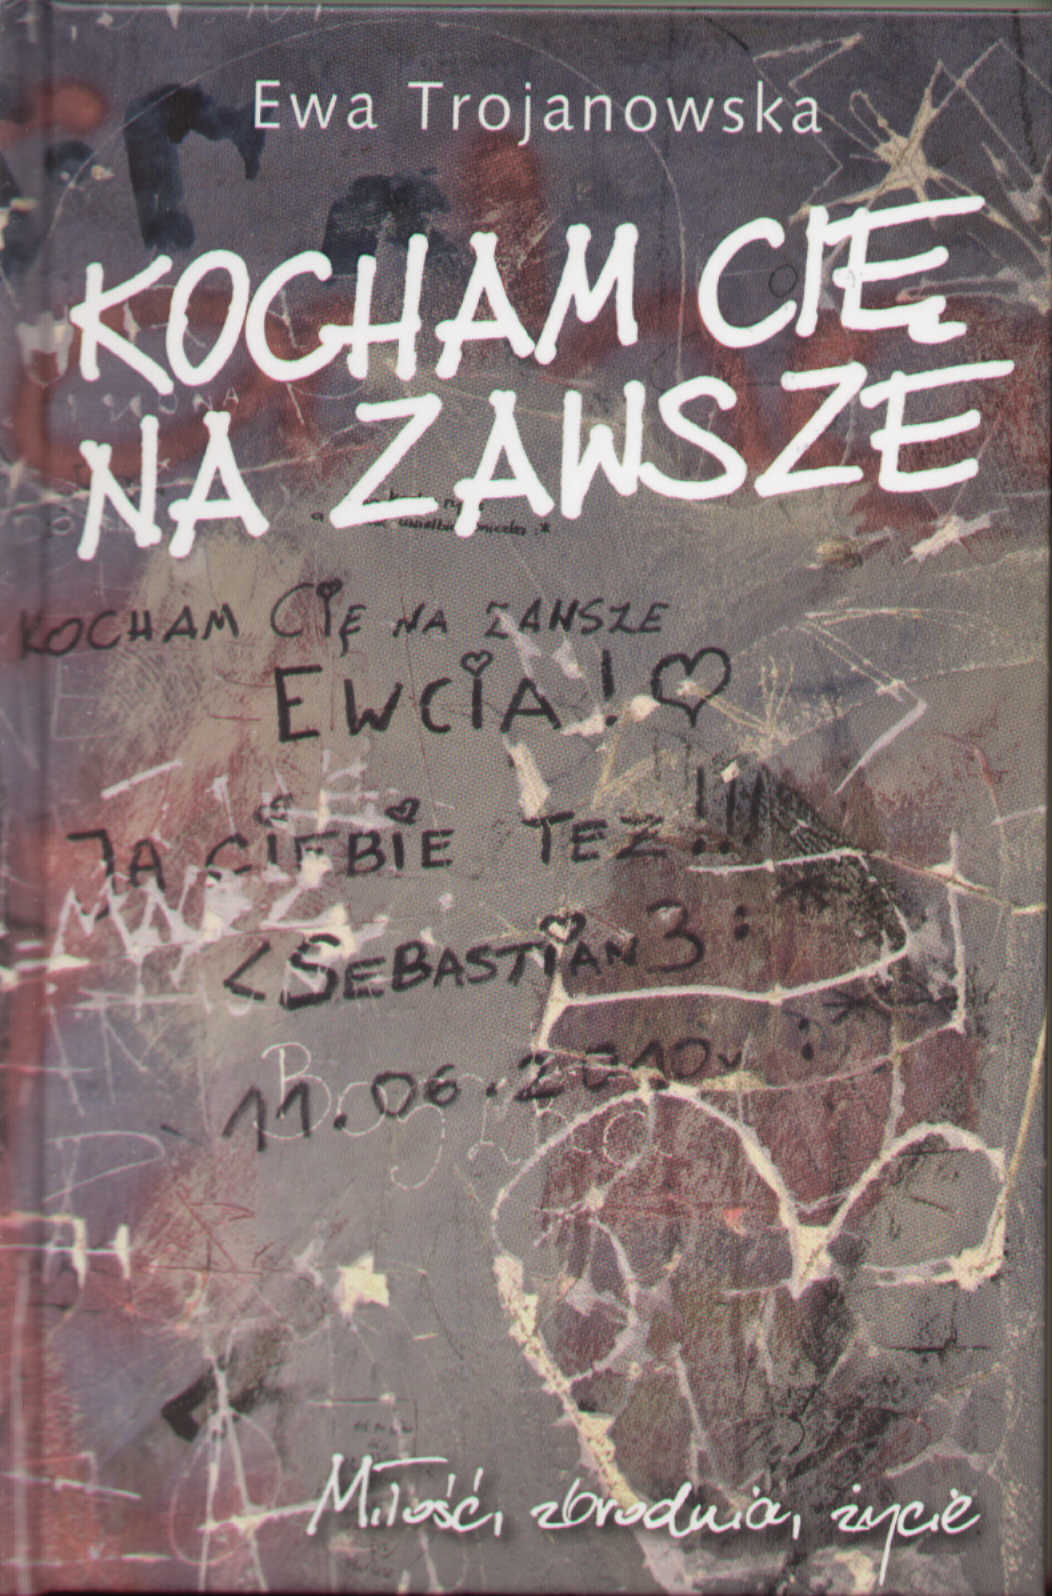 Ewa Trojanowska
KOCHAM CIĘ
NA ZAWSZE
KOCHAM CIĘ NA ZAWSZE
EWCIA! ♡
JA CIEBIE TEŻ!!!
<SEBASTIAN3 :*
11.06.2010r :*
Miłość, zbrodnia, życie